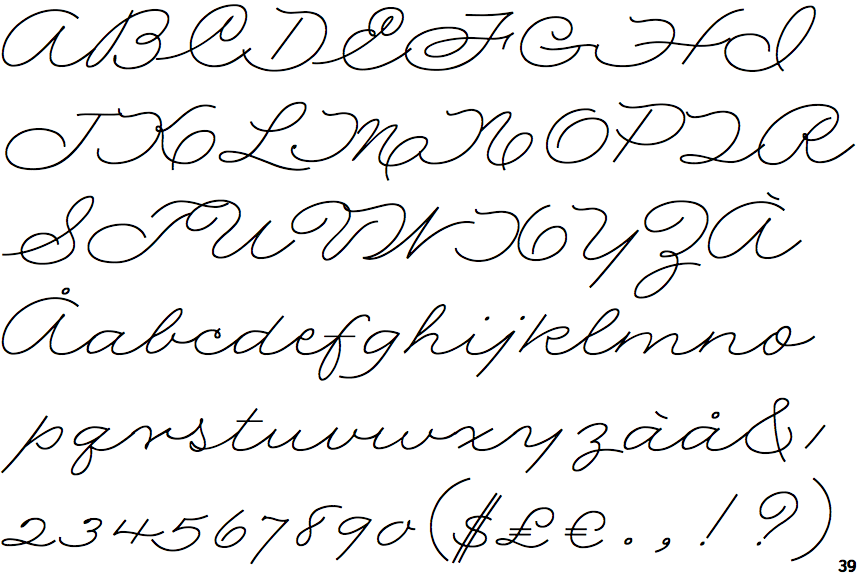 ABCDEFGHI
JKLMNOPQR
STUVWXYZÀ
Åabcdefghijklmno
pqrstuvwxyzàå&1
234567890($£€.,!?)
39